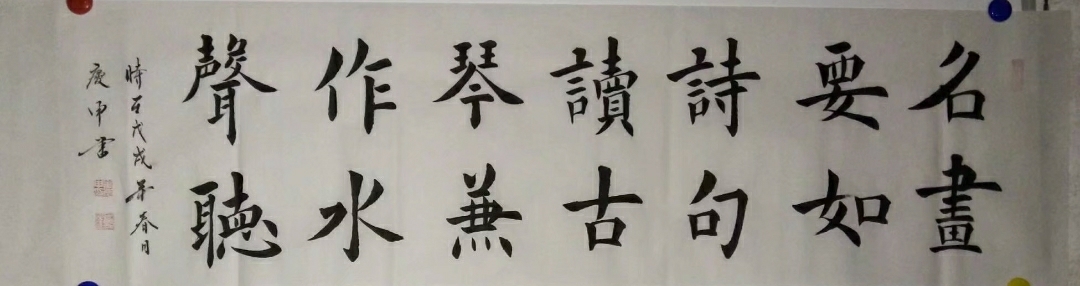 名畫
要如
詩句
讀古
琴兼
作水
聲聽
時在戊戌年春日
庚申書